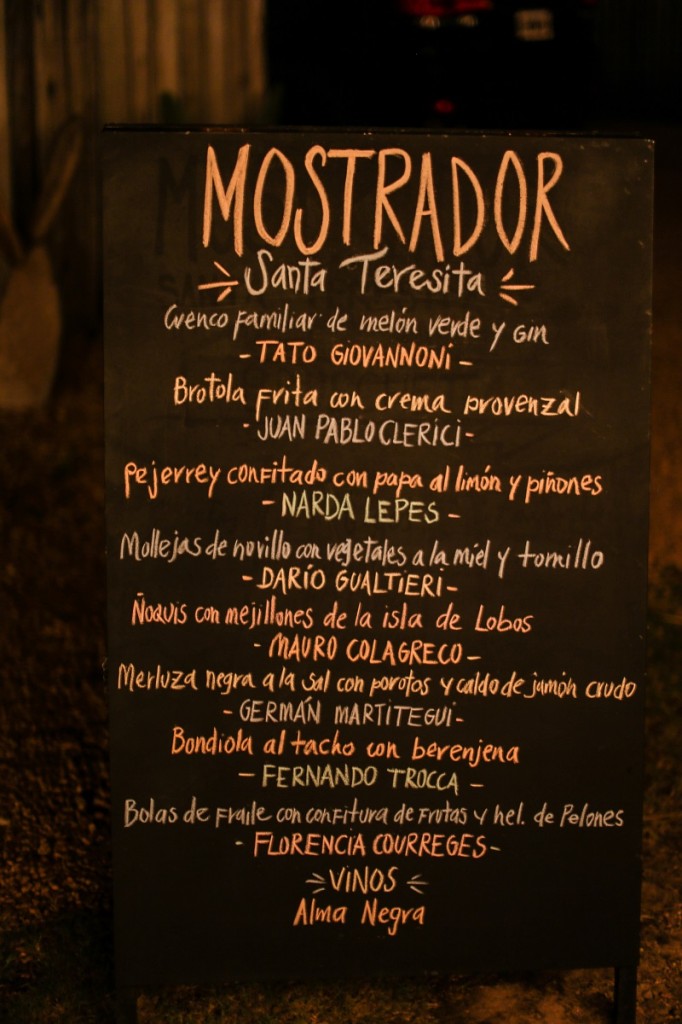 MOSTRADOR
Santa Teresita
Cuenco familiar de melón verde y Gin
- TATO GIOVANNONI -
Brotola frita con crema provenzal
- JUAN PABLO CLERICI -
Pejerrey confitado con papa al limón y piñones
- NARDA LEPES -
Mollejas de novillo con vegetales a la miel y tomillo
- DARÍO GUALTIERI -
Ñoquis con mejillones de la isla de Lobos
- MAURO COLAGRECO -
Merluza negra a la sal con porotos y caldo de jamón crudo
- GERMÁN MARTITEGUI -
Bondiola al tacho con berenjena
- FERNANDO TROCCA -
Bolas de Fraile con confitura de frutas y hel. de Pelones
- FLORENCIA COURREGES -
VINOS
Alma Negra